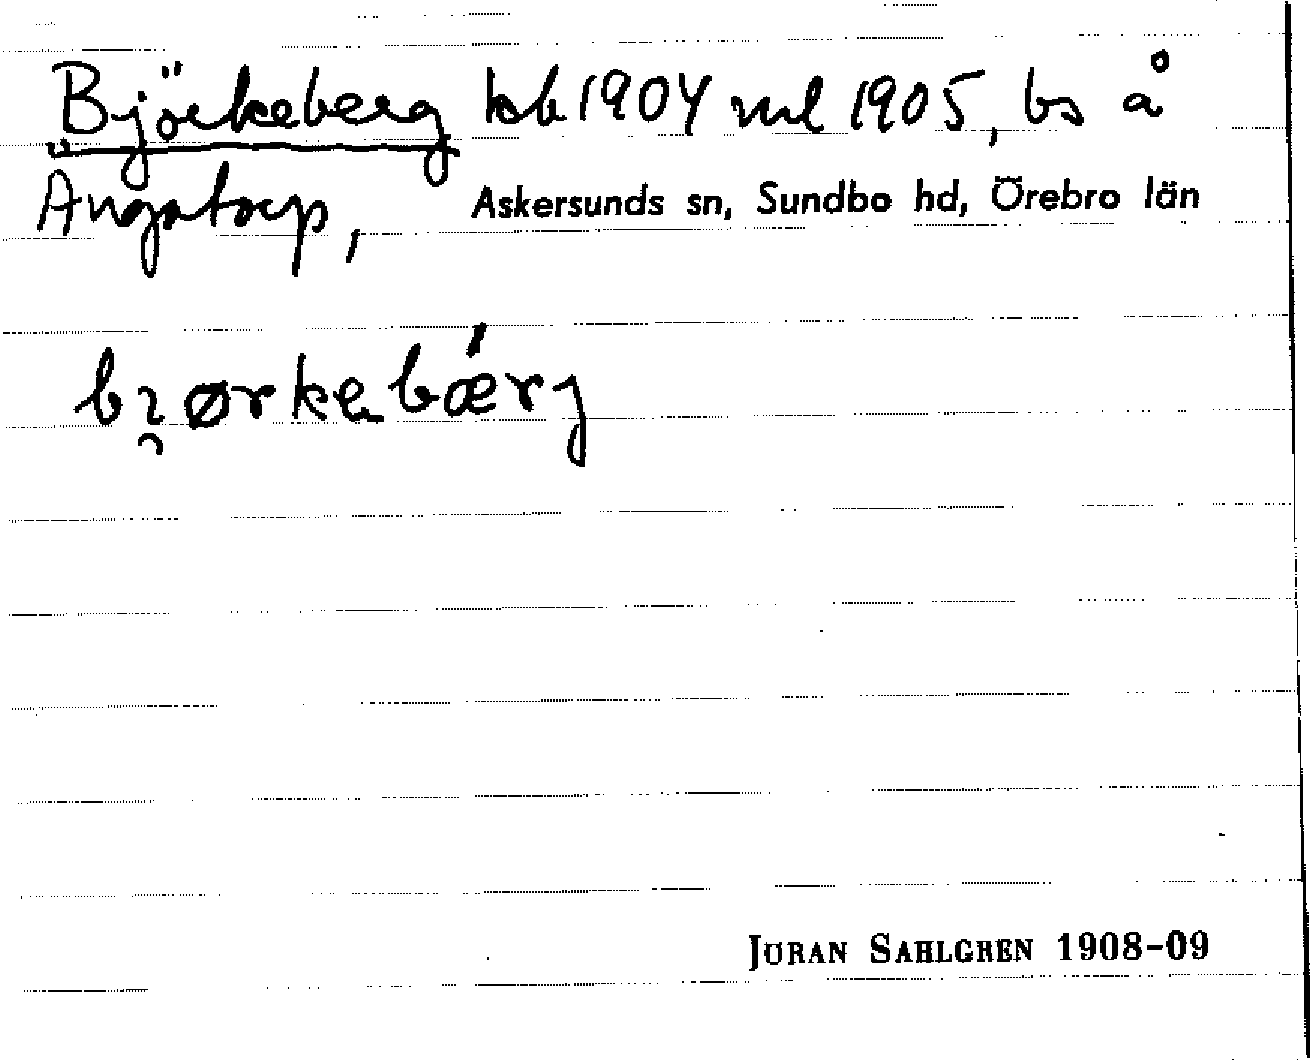 Björkeberg kb 1904 ml 1905, bs å
Ängatorp, Askersunds sn, Sundbo hd, Örebro län
JÖRAN SAHLGREN 1908-09